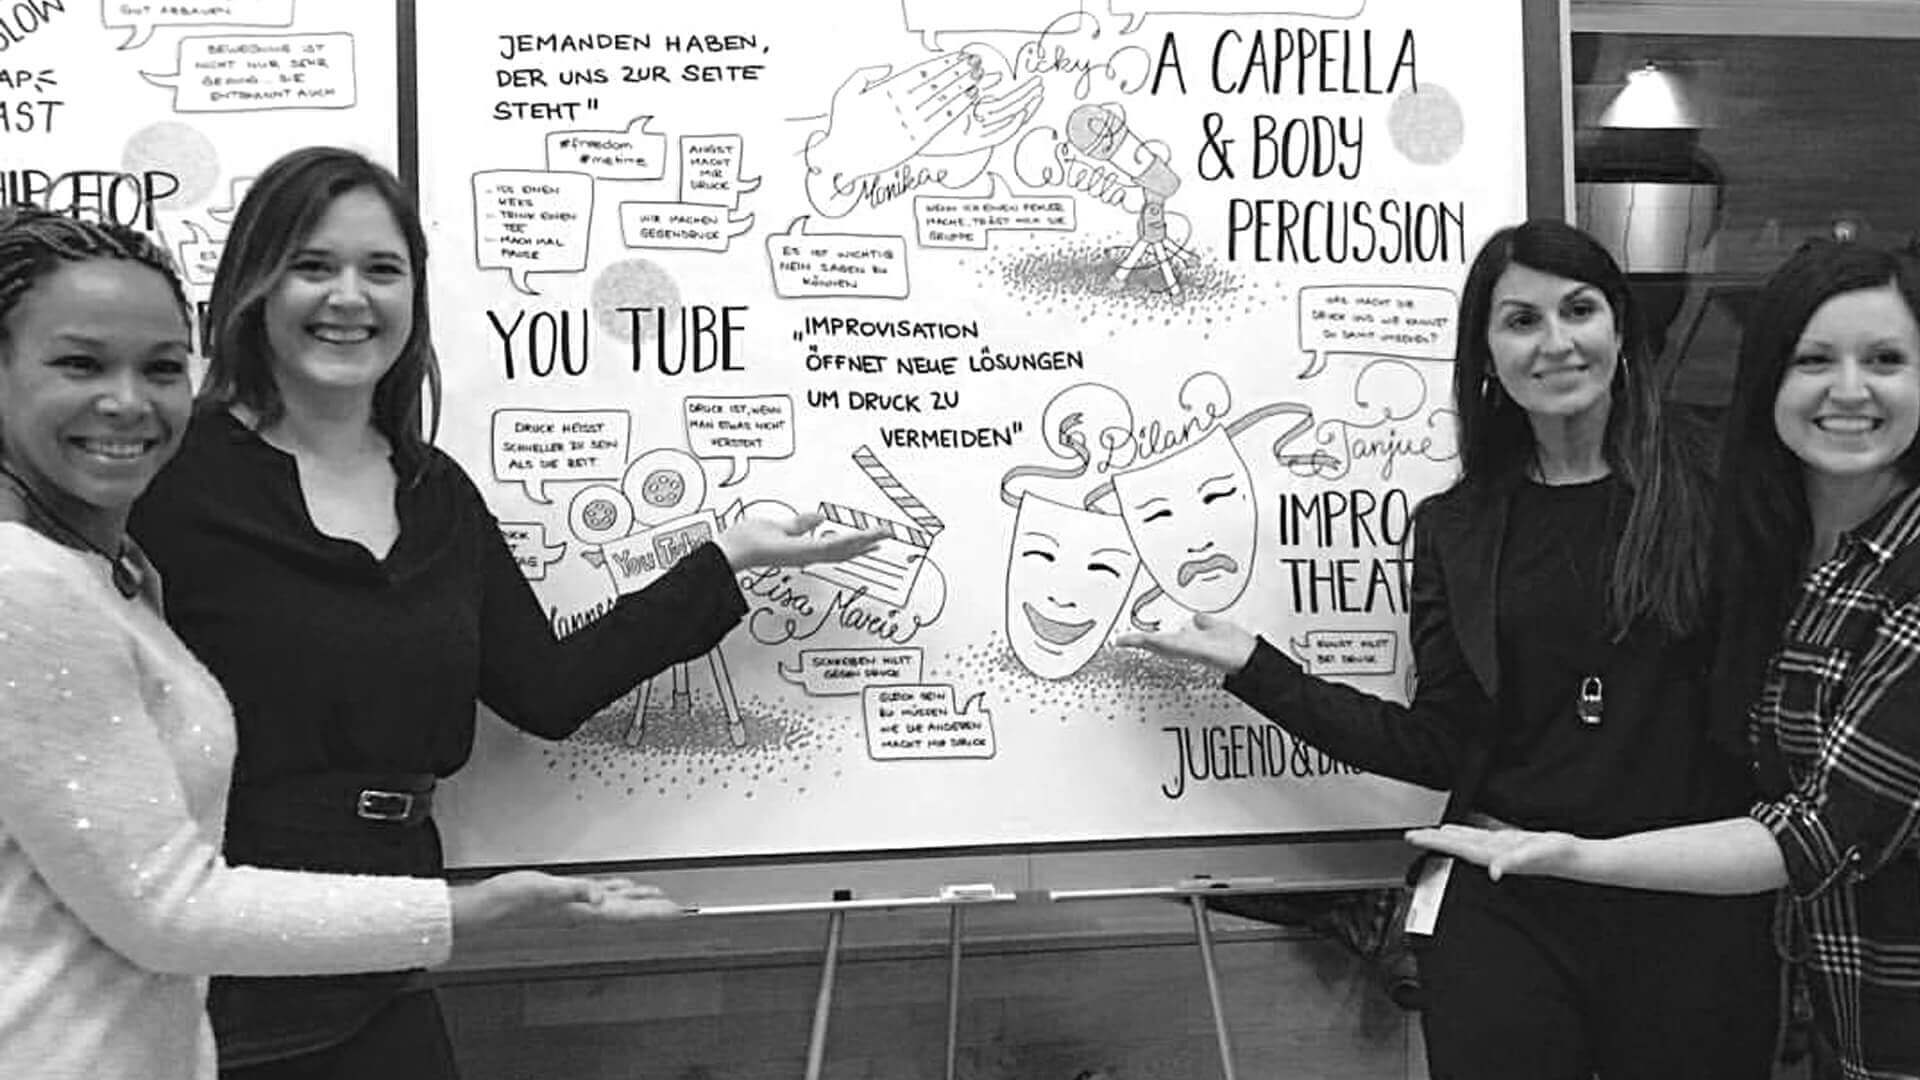 GUT ABBAUEN
BEWEGUNG IST
NICHT NUR SEHR
GESUND... SIE
ENTSPANNT AUCH
HIP HOP
JEMANDEN HABEN,
DER UNS ZUR SEITE
STEHT"
#freedom
#metime
ANGST
MACHT
MIR
DRUCK
- ISS EINEN
KEKS
- TRINK EINEN
TEE
- MACH MAL
PAUSE
WIR MACHEN
GEGENDRUCK
Vicky
Monika
Stella
A CAPPELLA
& BODY
PERCUSSION
WENN ICH EINEN FEHLER
MACHE, TRÄGT MICH DIE
GRUPPE
ES IST WICHTIG
NEIN SAGEN ZU
KÖNNEN
YOU TUBE
„IMPROVISATION
ÖFFNET NEUE LÖSUNGEN
UM DRUCK ZU
VERMEIDEN"
WAS MACHT DIR
DRUCK UND WIE KANNST
DU DAMIT UMGEHEN?
DRUCK HEISST
SCHNELLER ZU SEIN
ALS DIE ZEIT
DRUCK IST, WENN
MAN ETWAS NICHT
VERSTEHT
You Tube
Lisa Marie
Dilan
Tanju
IMPRO
THEAT
KUNST HILFT
BEI DRUCK
SCHREIBEN HILFT
GEGEN DRUCK
GLEICH SEIN
ZU MÜSSEN
WIE DIE ANDEREN
MACHT MIR DRUCK
JUGEND &